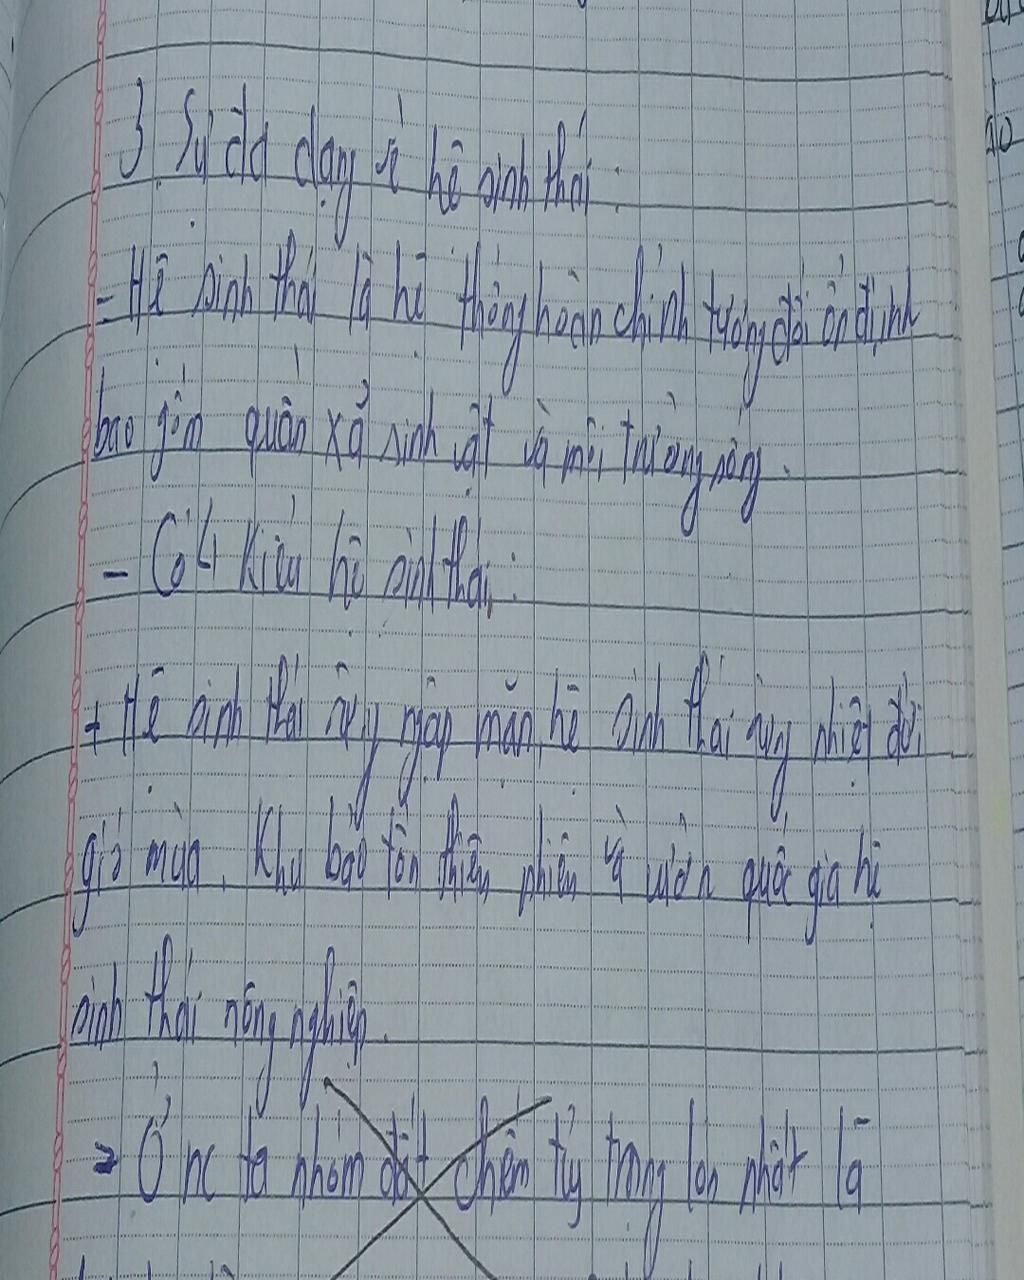 3 Sự đa dạng về hệ sinh thái :
- Hệ sinh thái là hệ thống hoàn chỉnh tương đối ổn định
bao gồm quần xã sinh vật và môi trường sống.
- Có 4 kiểu hệ sinh thái :
+ Hệ sinh thái rừng ngập mặn, hệ sinh thái rừng nhiệt đới
gió mùa. Khu bảo tồn thiên nhiên và vườn quốc gia hệ
sinh thái nông nghiệp.
Ở nc ta nhóm đất chiếm tỷ trọng lớn nhất là